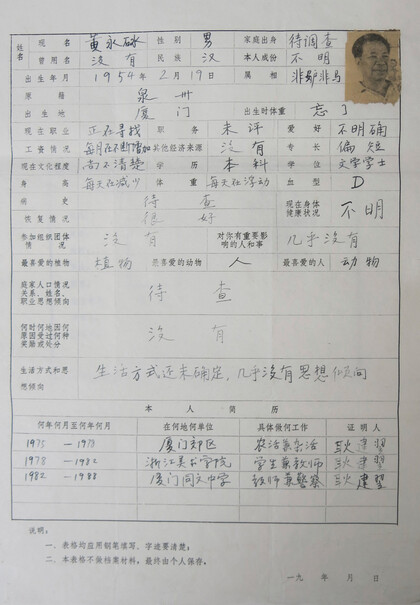 姓名 现名 黄永砯 性别 男 家庭出身 待调查
曾用名 没有 民族 汉 本人成份 不明
出生年月 1954年2月19日 属相 非驴非马
原籍 泉州
出生地 厦门 出生时体重 忘了
现在职业 正在寻找 职务 未评 爱好 不明确
工资情况 每月在不断增加 其他经济来源 没有 专长 偏短
现在文化程度 尚不清楚 学历 本科 学位 文学学士
身高 每天在减少 体重 每天在浮动 血型 D
病史 待查 现在身体健康状况 不明
恢复情况 很好
参加组织团体情况 没有 对你有重要影响的人和事 几乎没有
最喜爱的植物 植物 最喜爱的动物 人 最喜爱的人 动物
庭家人口情况关系、姓名、职业思想倾向 待查
何时何地因何原因受过何种奖励或处分 没有
生活方式和思想倾向 生活方式还未确定,几乎没有思想倾向
本人简历
何年何月至何年何月 在何地何单位 具体做何工作 证明人
1975—1978 厦门郊区 农活兼杂活 耿建翌
1978—1982 浙江美术学院 学生兼教师 耿建翌
1982—1988 厦门同文中学 教师兼警察 耿建翌
说明:
一、表格均应用钢笔填写、字迹要清楚;
二、本表格不做档案材料,最终由个人保存。
一九 年 月 日